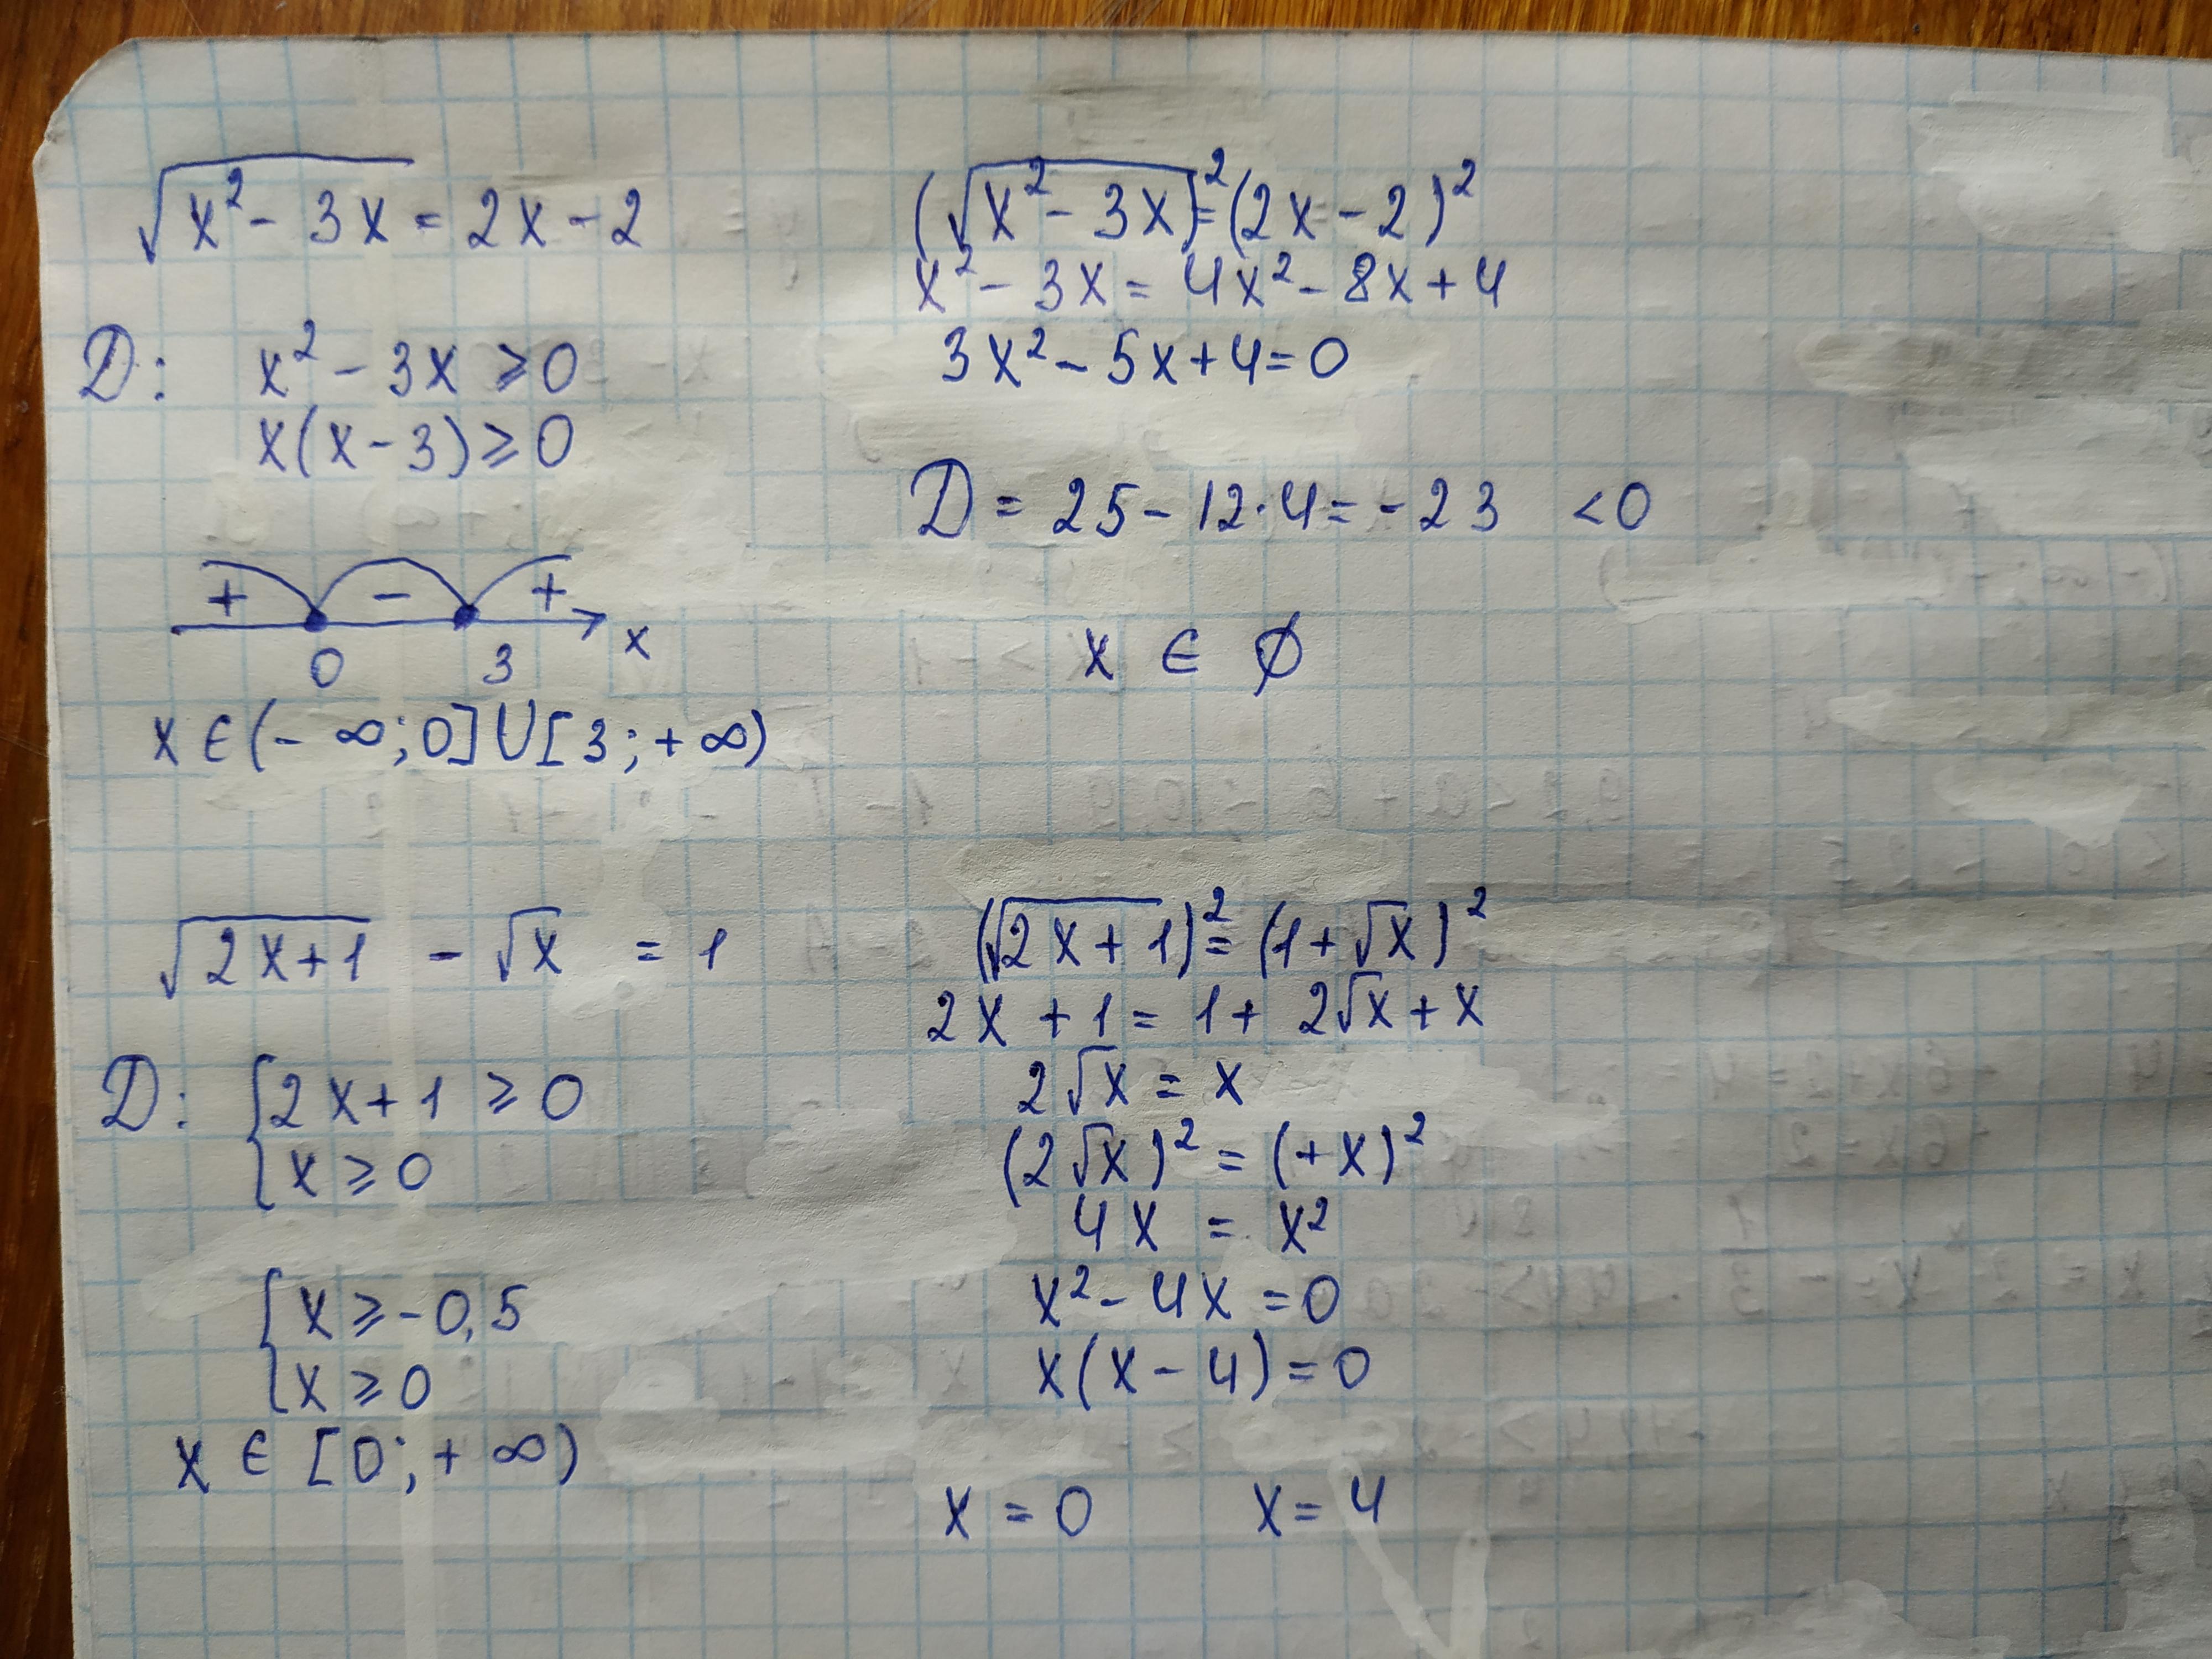 √(x² - 3x) = 2x - 2
D: x² - 3x ≥ 0
x(x - 3) ≥ 0
+ - +
0 3 x
x ∈ (- ∞; 0] U [3; + ∞)
(√(x² - 3x))² = (2x - 2)²
x² - 3x = 4x² - 8x + 4
3x² - 5x + 4 = 0
D = 25 - 12·4 = - 23 < 0
x ∈ ∅
√(2x + 1) - √x = 1
D: { 2x + 1 ≥ 0
x ≥ 0
{ x ≥ - 0,5
x ≥ 0
x ∈ [0; + ∞)
(√(2x + 1))² = (1 + √x)²
2x + 1 = 1 + 2√x + x
2√x = x
(2√x)² = (+x)²
4x = x²
x² - 4x = 0
x(x - 4) = 0
x = 0 x = 4